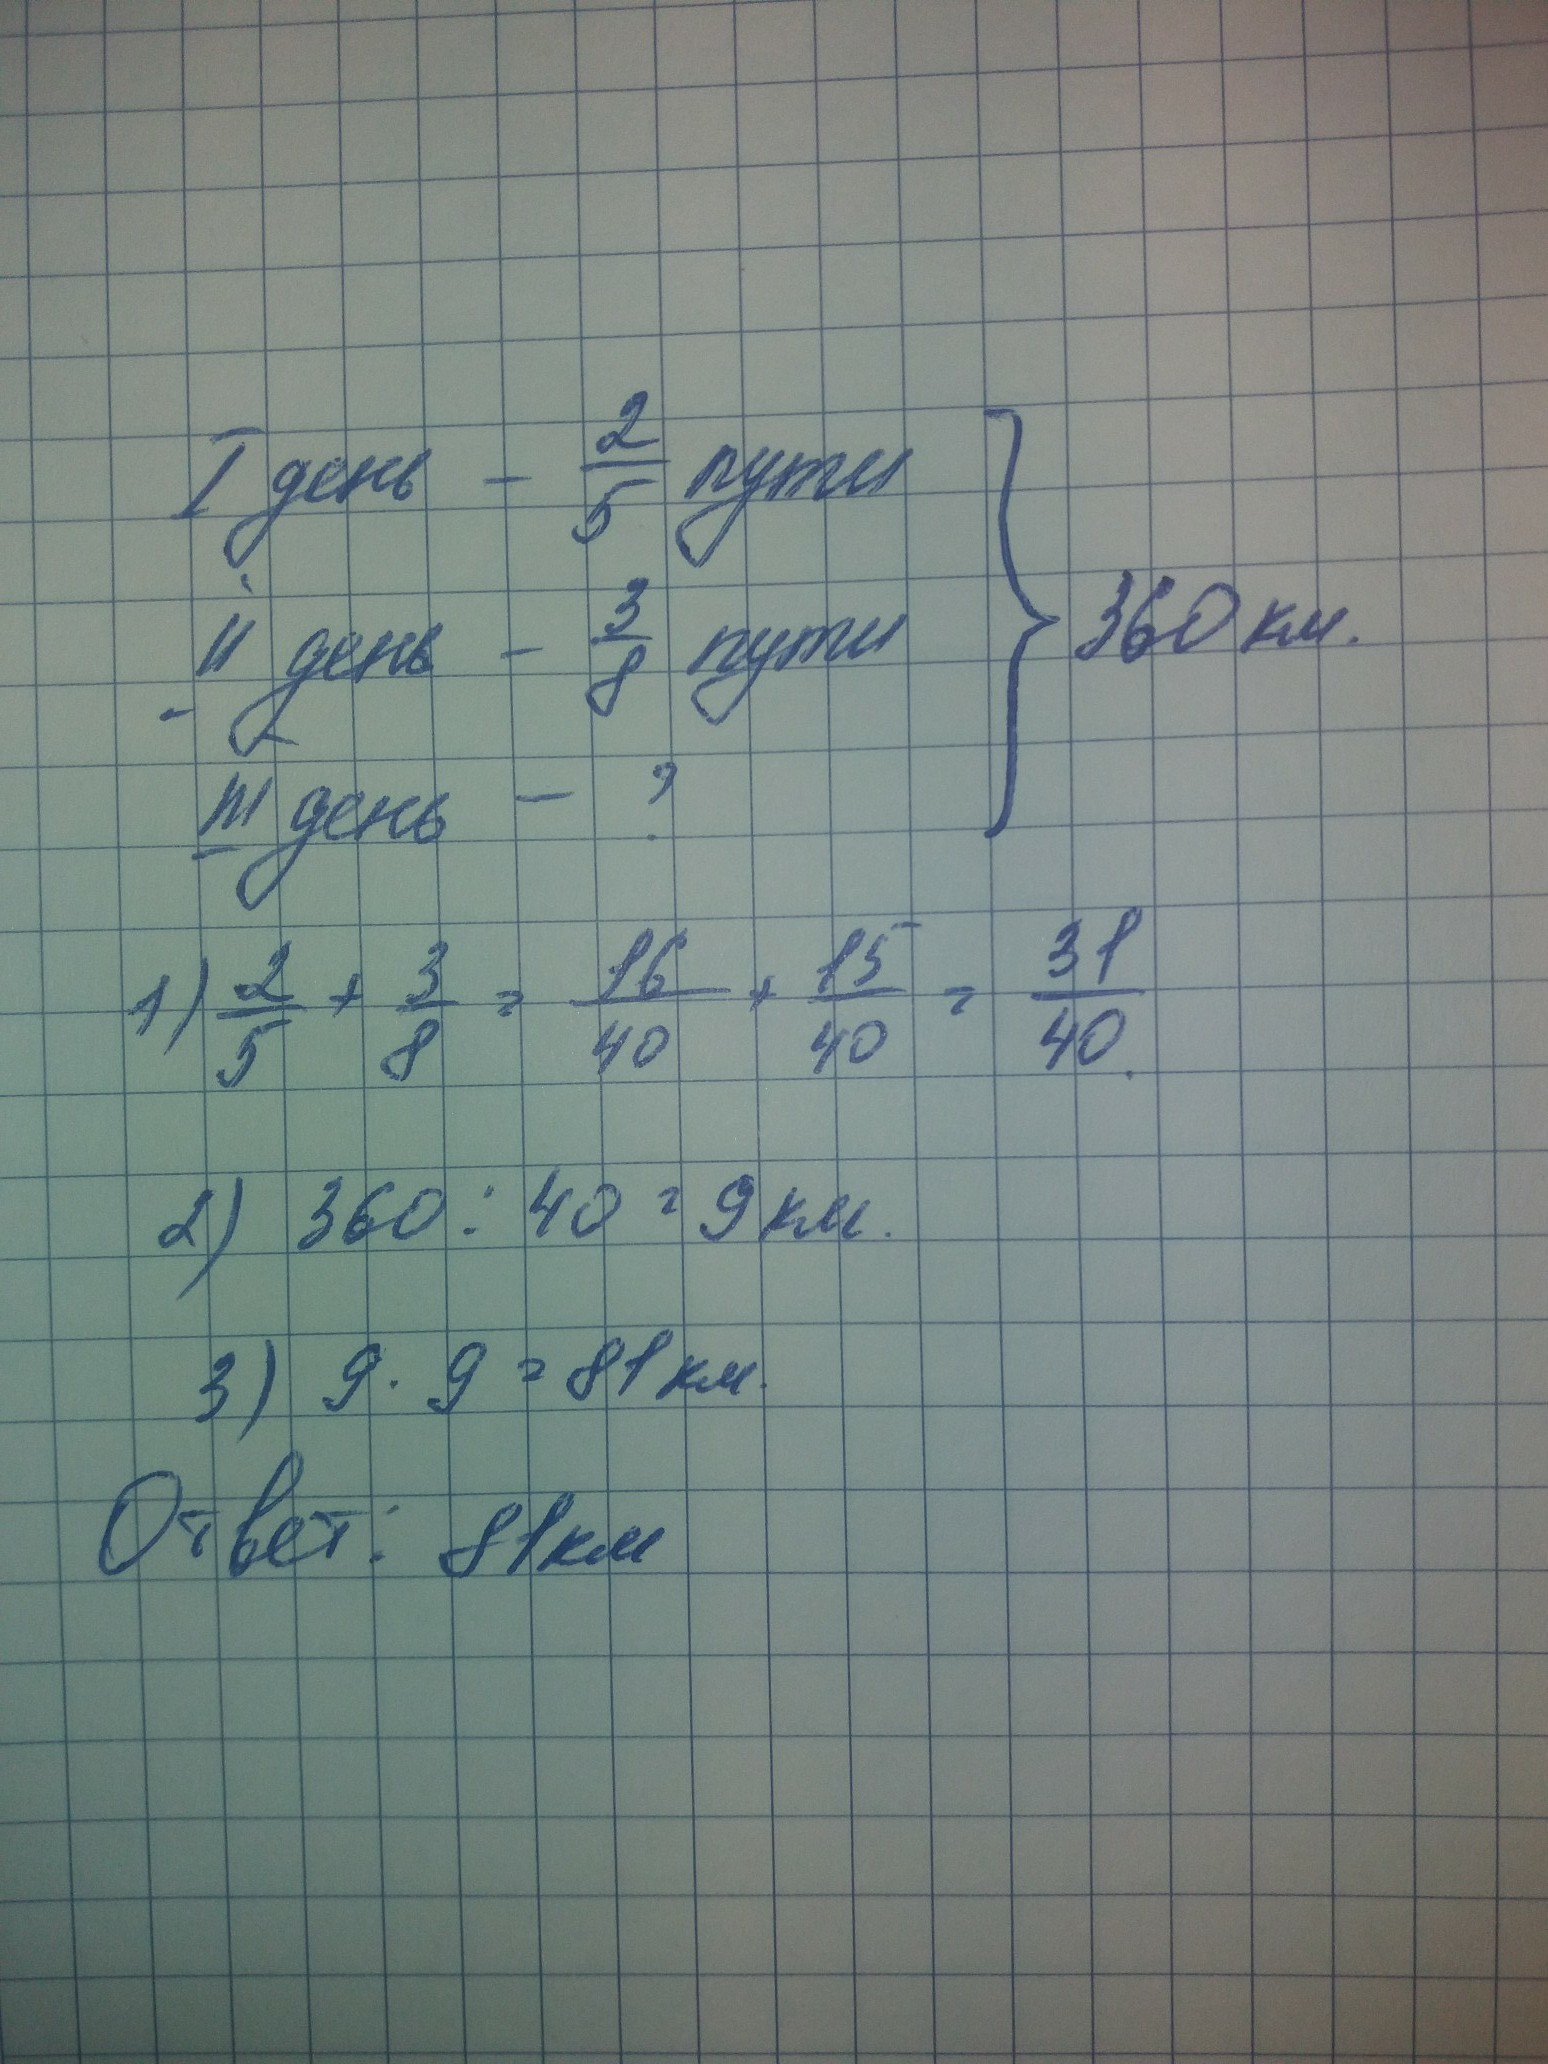 I день - 2/5 пути
II день - 3/8 пути } 360 км.
III день - ?
1) 2/5 + 3/8 = 16/40 + 15/40 = 31/40.
2) 360 : 40 = 9 км.
3) 9 · 9 = 81 км.
Ответ: 81 км